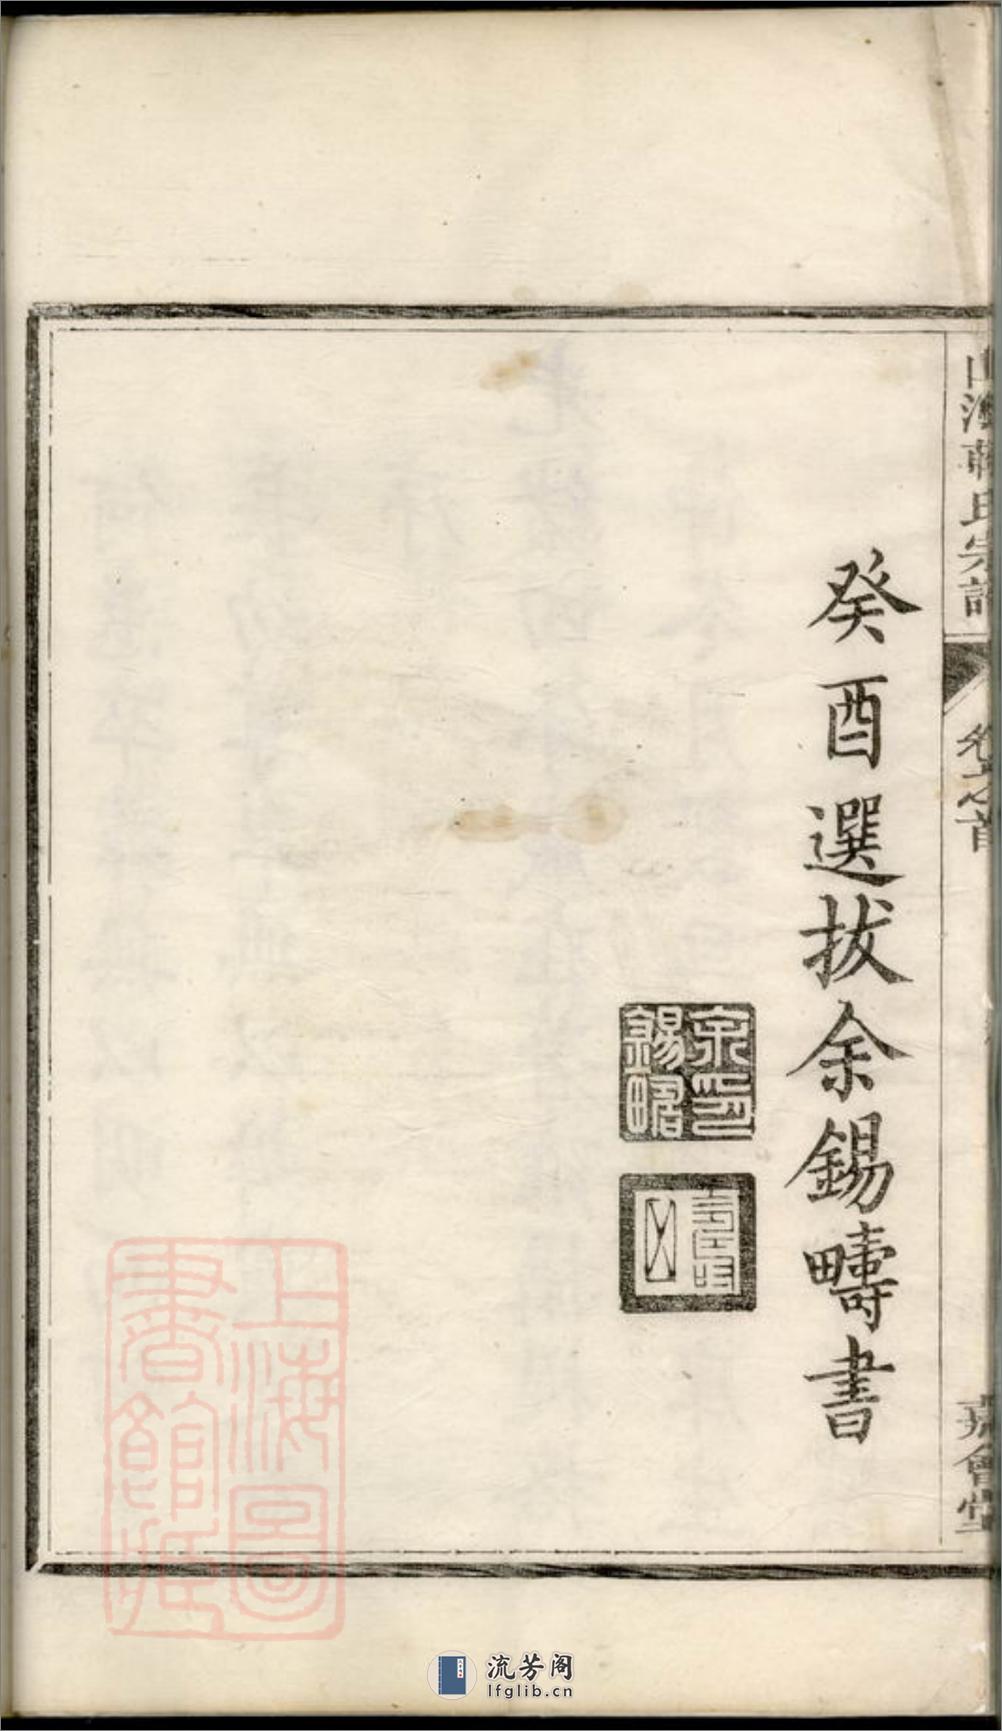 山海蔣氏宗譜
卷之首
嘉會堂
癸酉選拔余錫疇書
余印
錫疇
上海圖
書館藏
流芳阁
lfglib.cn